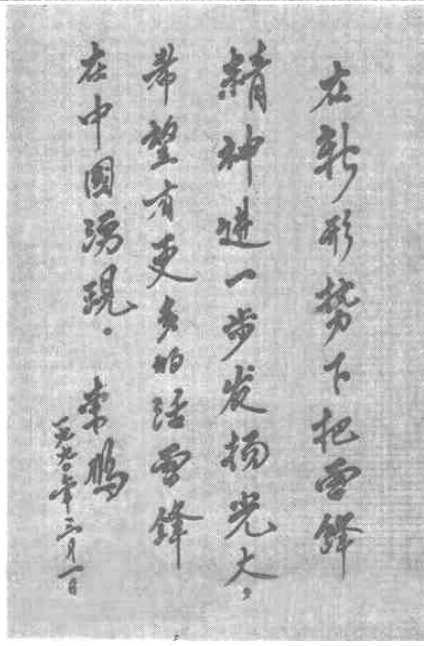 在新形势下把雷锋
精神进一步发扬光大。
希望有更多的活雷锋
在中国涌现。
李鹏
一九九〇年三月一日